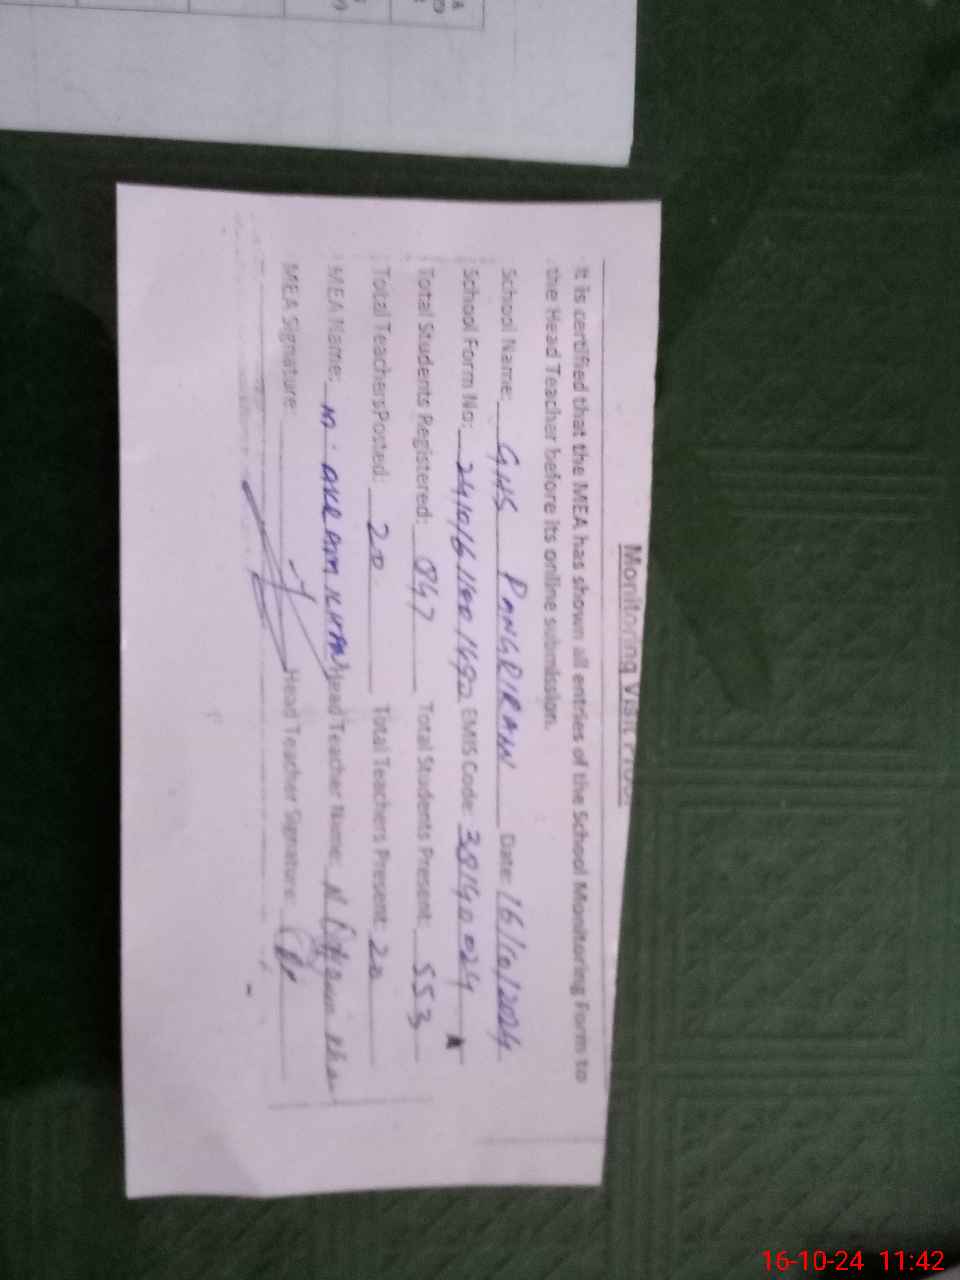 Monitoring Visit Proof
It is certified that the MEA has shown all entries of the School Monitoring Form to
the Head Teacher before its online submission.
School Name: GHS PANGRIRAN Date: 16/10/2024
School Form No: EMIS Code: 38190024
Total Students Registered: 847 Total Students Present: 553
Total Teachers Posted: 20 Total Teachers Present: 20
MEA Name: M. AKRAM KHAN Head Teacher Name:
MEA Signature: Head Teacher Signature:
16-10-24 11:42